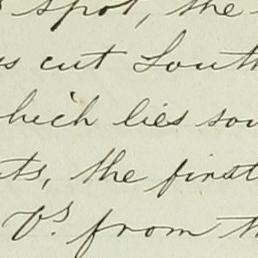 spot, the
cut South
which lies sou
the first
from